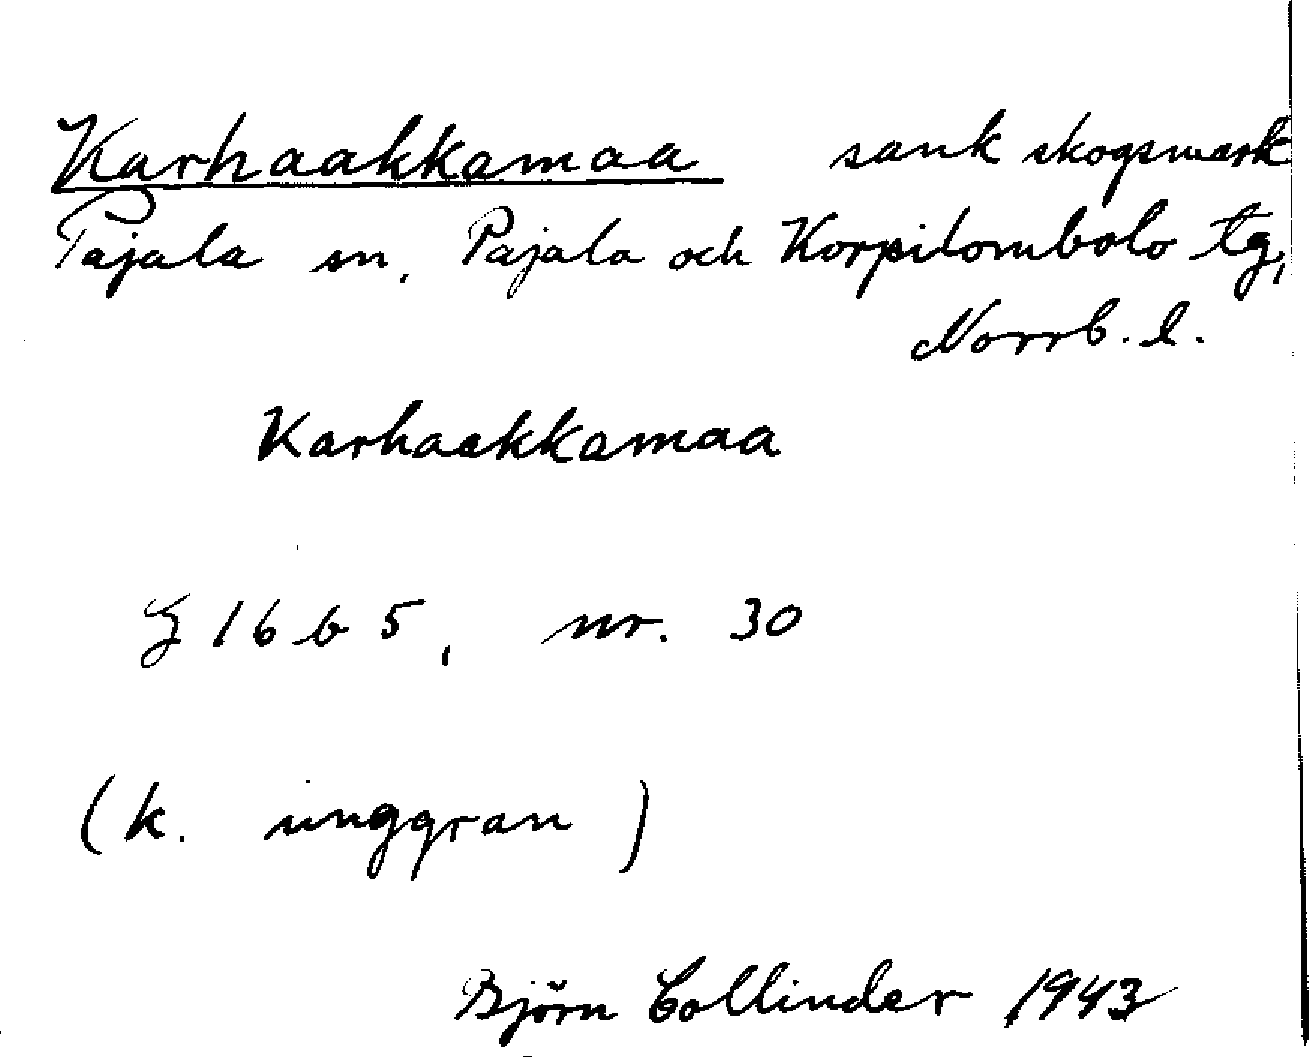 Karhaakkamaa sank skogsmark
Pajala sn. Pajala och Korpilombolo tg,
Norrb. l.
Karhaakkamaa
§ 16 b 5, nr. 30
(k. unggran)
Björn Collinder 1943